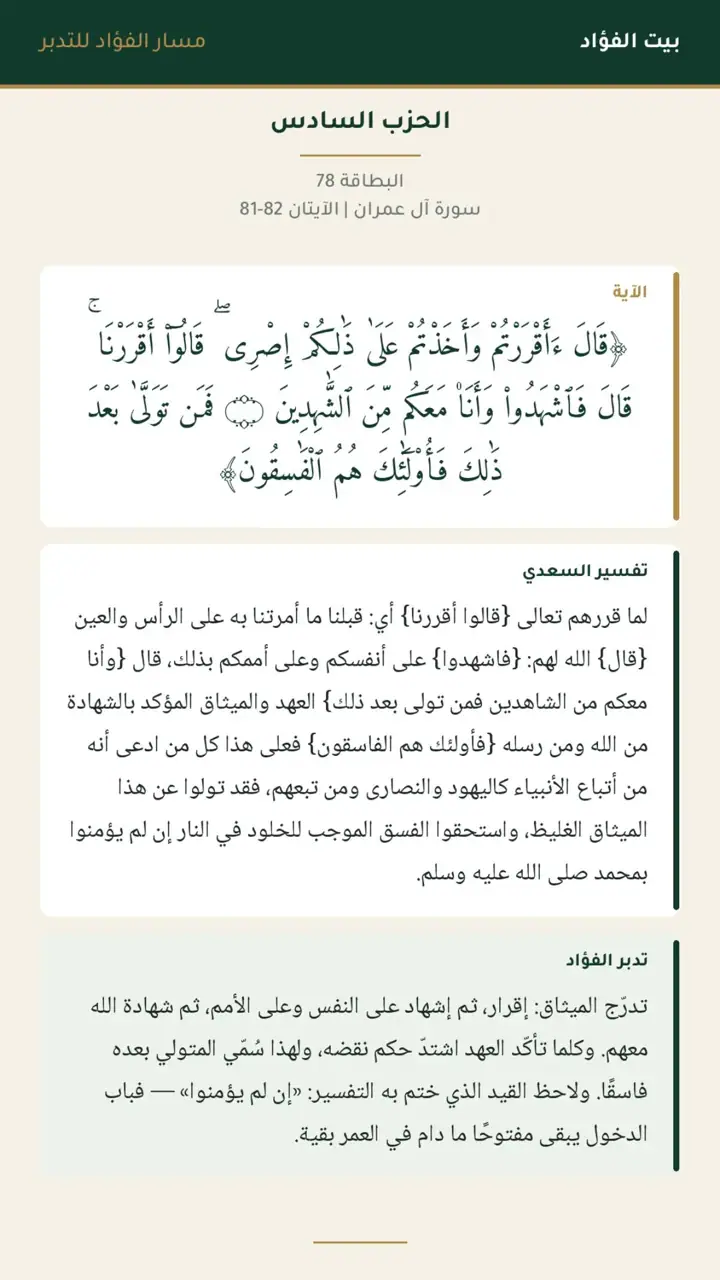 بيت الفؤاد
مسار الفؤاد للتدبر
الحزب السادس
البطاقة 78
سورة آل عمران | الآيتان 82-81
الآية
﴿قَالَ ءَأَقْرَرْتُمْ وَأَخَذْتُمْ عَلَىٰ ذَٰلِكُمْ إِصْرِى ۖ قَالُوٓا۟ أَقْرَرْنَا ۚ
قَالَ فَٱشْهَدُوا۟ وَأَنَا۠ مَعَكُم مِّنَ ٱلشَّٰهِدِينَ ۝ فَمَن تَوَلَّىٰ بَعْدَ
ذَٰلِكَ فَأُو۟لَٰٓئِكَ هُمُ ٱلْفَٰسِقُونَ﴾
تفسير السعدي
لما قررهم تعالى {قالوا أقررنا} أي: قبلنا ما أمرتنا به على الرأس والعين
{قال} الله لهم: {فاشهدوا} على أنفسكم وعلى أممكم بذلك، قال {وأنا
معكم من الشاهدين فمن تولى بعد ذلك} العهد والميثاق المؤكد بالشهادة
من الله ومن رسله {فأولئك هم الفاسقون} فعلى هذا كل من ادعى أنه
من أتباع الأنبياء كاليهود والنصارى ومن تبعهم، فقد تولوا عن هذا
الميثاق الغليظ، واستحقوا الفسق الموجب للخلود في النار إن لم يؤمنوا
بمحمد صلى الله عليه وسلم.
تدبر الفؤاد
تدرّج الميثاق: إقرار، ثم إشهاد على النفس وعلى الأمم، ثم شهادة الله
معهم. وكلما تأكّد العهد اشتدّ حكم نقضه، ولهذا سُمّي المتولي بعده
فاسقًا. ولاحظ القيد الذي ختم به التفسير: «إن لم يؤمنوا» — فباب
الدخول يبقى مفتوحًا ما دام في العمر بقية.